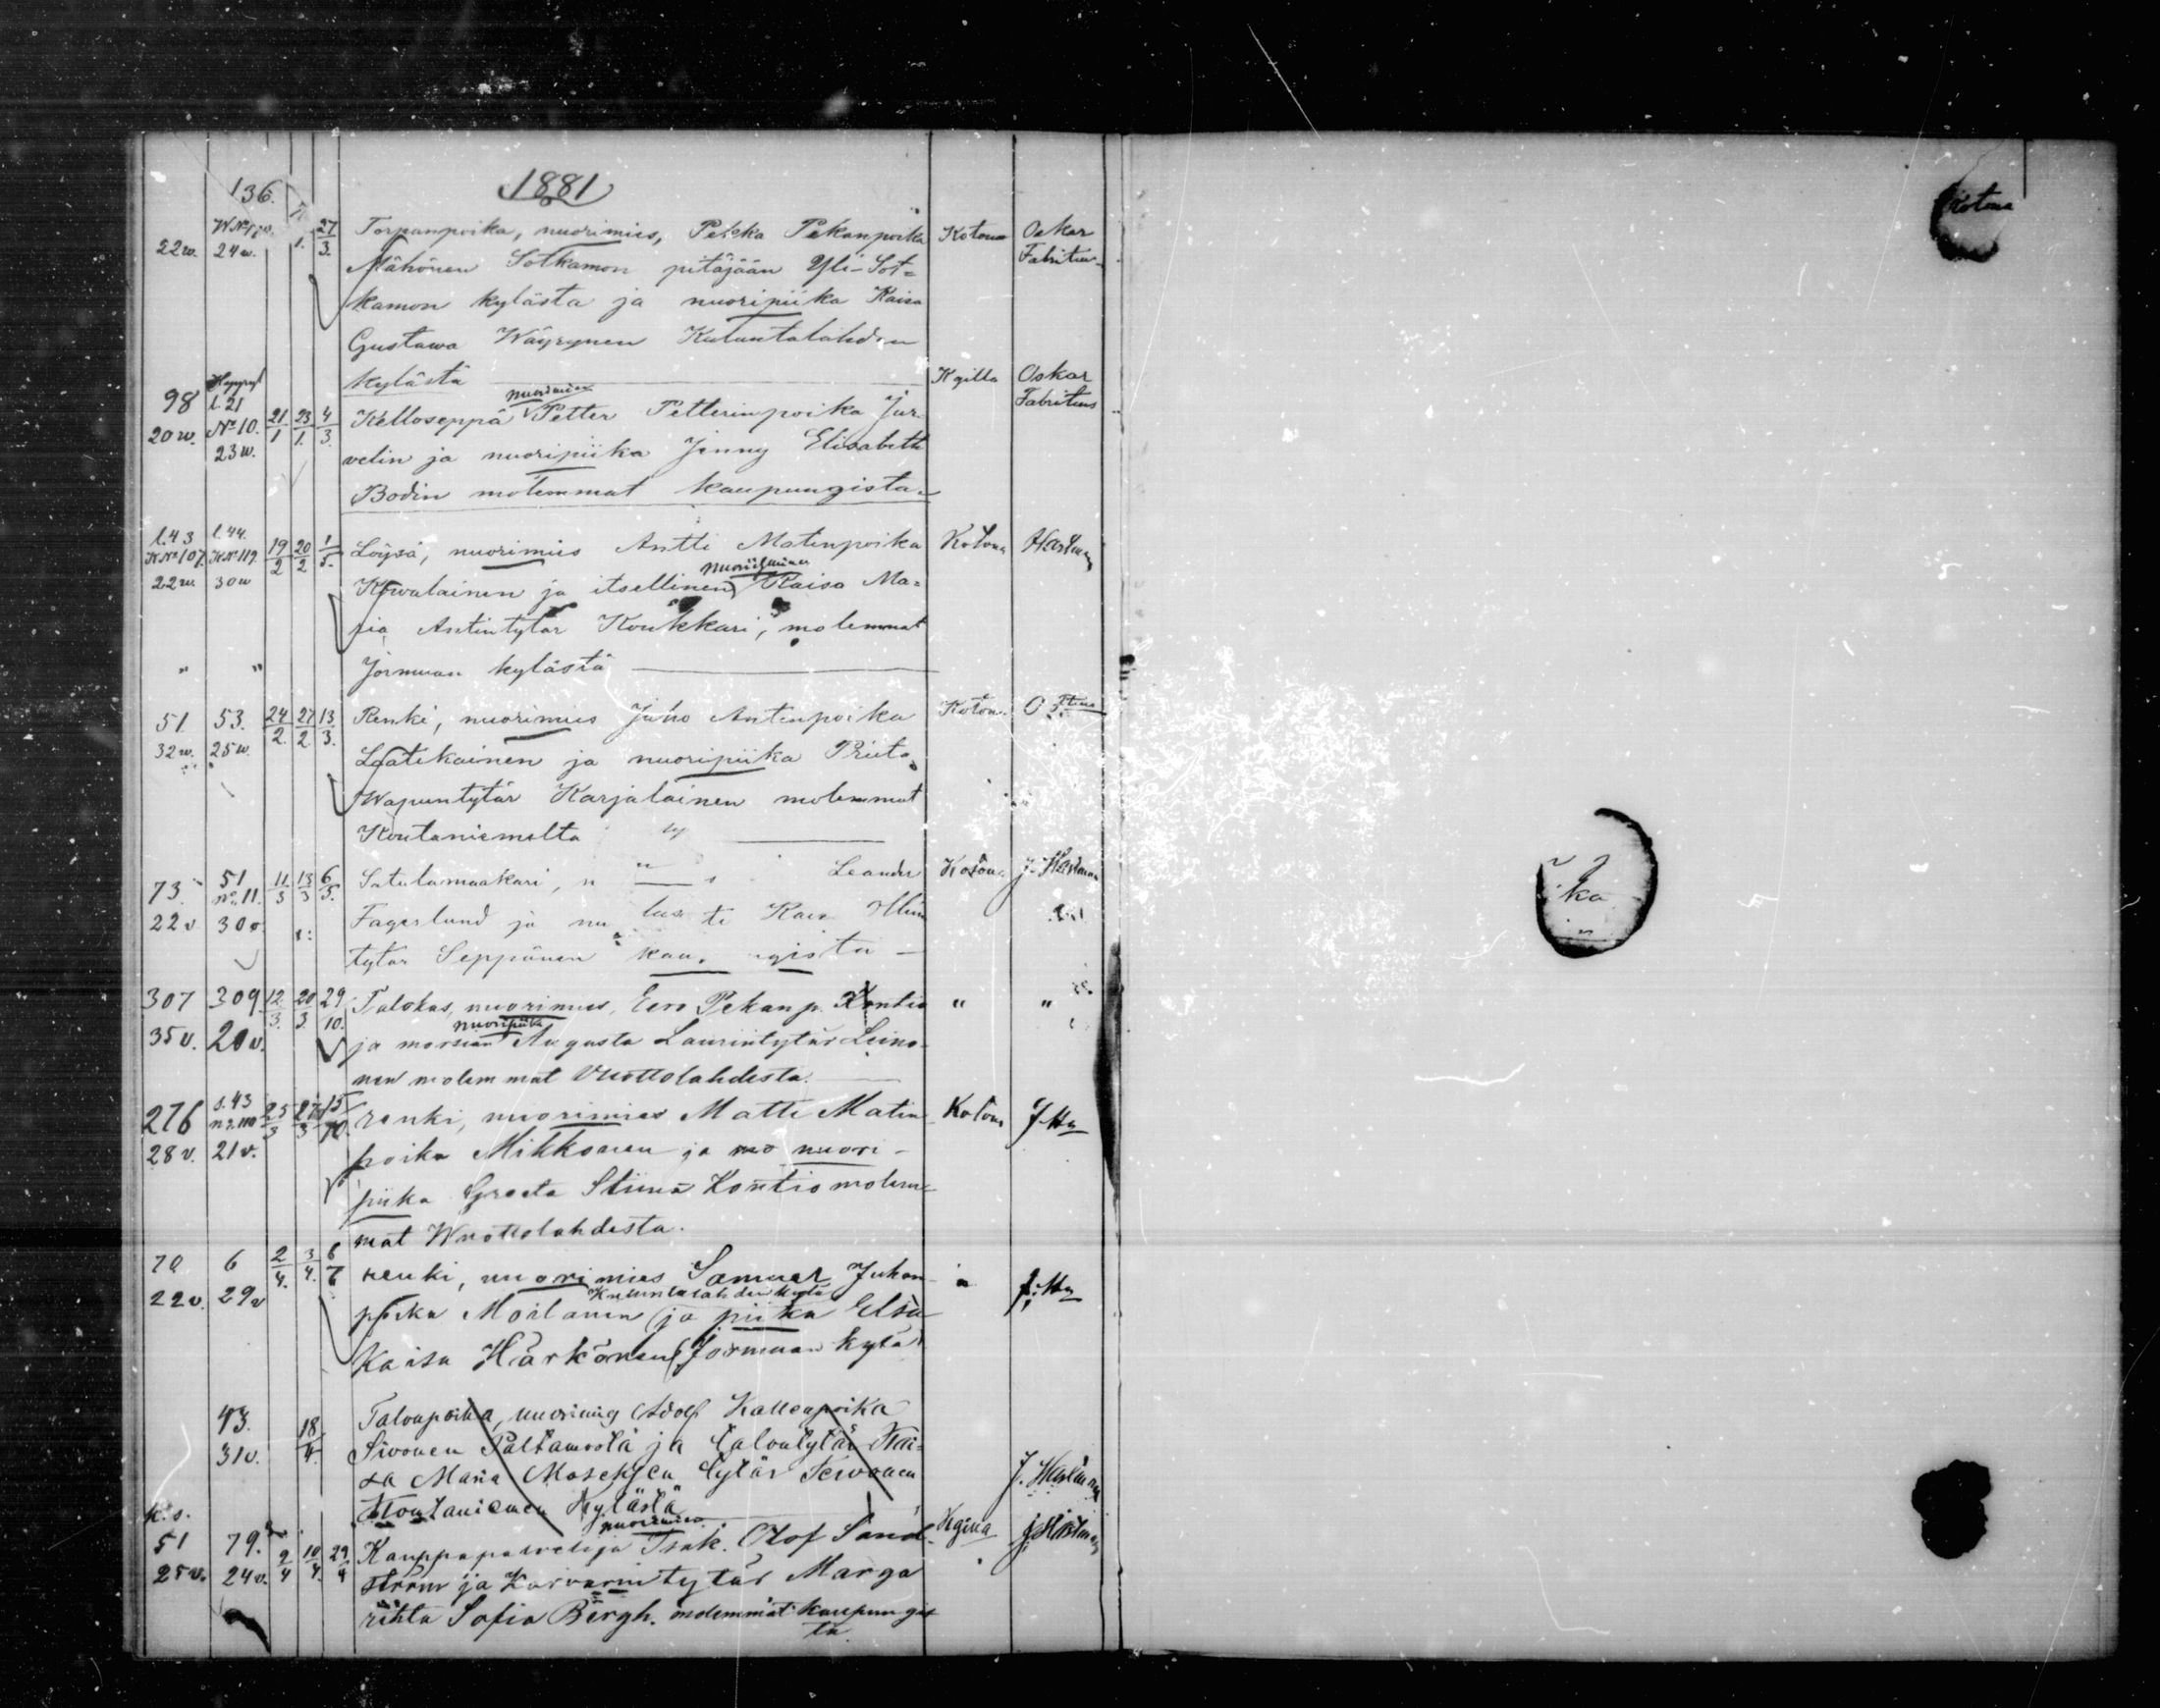 1881
136.
22w. 24w. 1. 27/3. Torpanpoika, nuorimies, Pekka Pekanpoika Kotona Oskar
Mähönen Sotkamon pitäjään Yli-Sot= Fabritius
kamon kylästä ja nuoripiika Kaisa
Gustawa Wäyrynen Kuluntalahden
kylästä Kgilla Oskar
98 l. 21 nuorimies Fabritius
20w. No 10. 21/1 23/1. 4/3. Kelloseppä Petter Petterinpoika Jur-
23w. velin ja nuoripiika Jenny Elisabeth
Bodin molemmat kaupungista.
l.43 l.44. 19/2 20/2 1/5. Löysä, nuorimies Antti Matinpoika Kotona Hartman
No 107. No 119.
22w 30w Kowalainen ja itsellinen Kaisa Ma=
ria Antintytär Koukkari, molemmat
" " Jormuan kylästä
51. 53. 24/2. 27/2 13/3. Renki, nuorimies Juho Antinpoika Koton.
32w. 25w. Laatikainen ja nuoripiika Priita
Wapuntytär Karjalainen molemmat
Koutaniemeltä
73. 51 11/3 13/3 6/5. Satulamaakari, Leander Kotona J. Hartman
no. 11.
22v 30v. Fagerlund ja
tytär Seppänen
307 309 12/3. 20/3. 29/10. Talokas, nuorimies, Eero Pekanp. Kontio " "
nuoripiika
35v. 20v. ja morsian Augusta Laurintytär Leino-
nen molemmat Vuottolahdesta.
276 s.43 25/3 27/3 15/10. renki, nuorimies Matti Matin Kotona J. Hn
no. 110
28v. 21v. poika Mikkonen ja mo nuori-
piika Greeta Stiina Kontio molem=
mat Wuottolahdesta.
70 6 2/4. 3/4. 6/6 renki, nuorimies Samuel Juhan J. Hn
Kuluntalahden kylä
22v. 29v poika Moilanen (ja piika Elsa
Kaisa Härkönen (Jormuan kylä)
43. 18/4. Talonpoika, nuorimies Adolf Kallenpoika
31v. Sivonen Paltamosta ja talontytär Kai=
sa Maria Moseksen tytär Servonen J. Hartman
Koutaniemen kylästä
k.s. nuorimies
51 79. 9/4 10/4. 29/4 Kauppapalvelija Isak. Olof Sand- Kgilla J. Hartman
25v. 24v. ström ja Karvarintytär Marga
rihta Sofia Bergh. molemmat kaupungis
ta
Kotona
ka